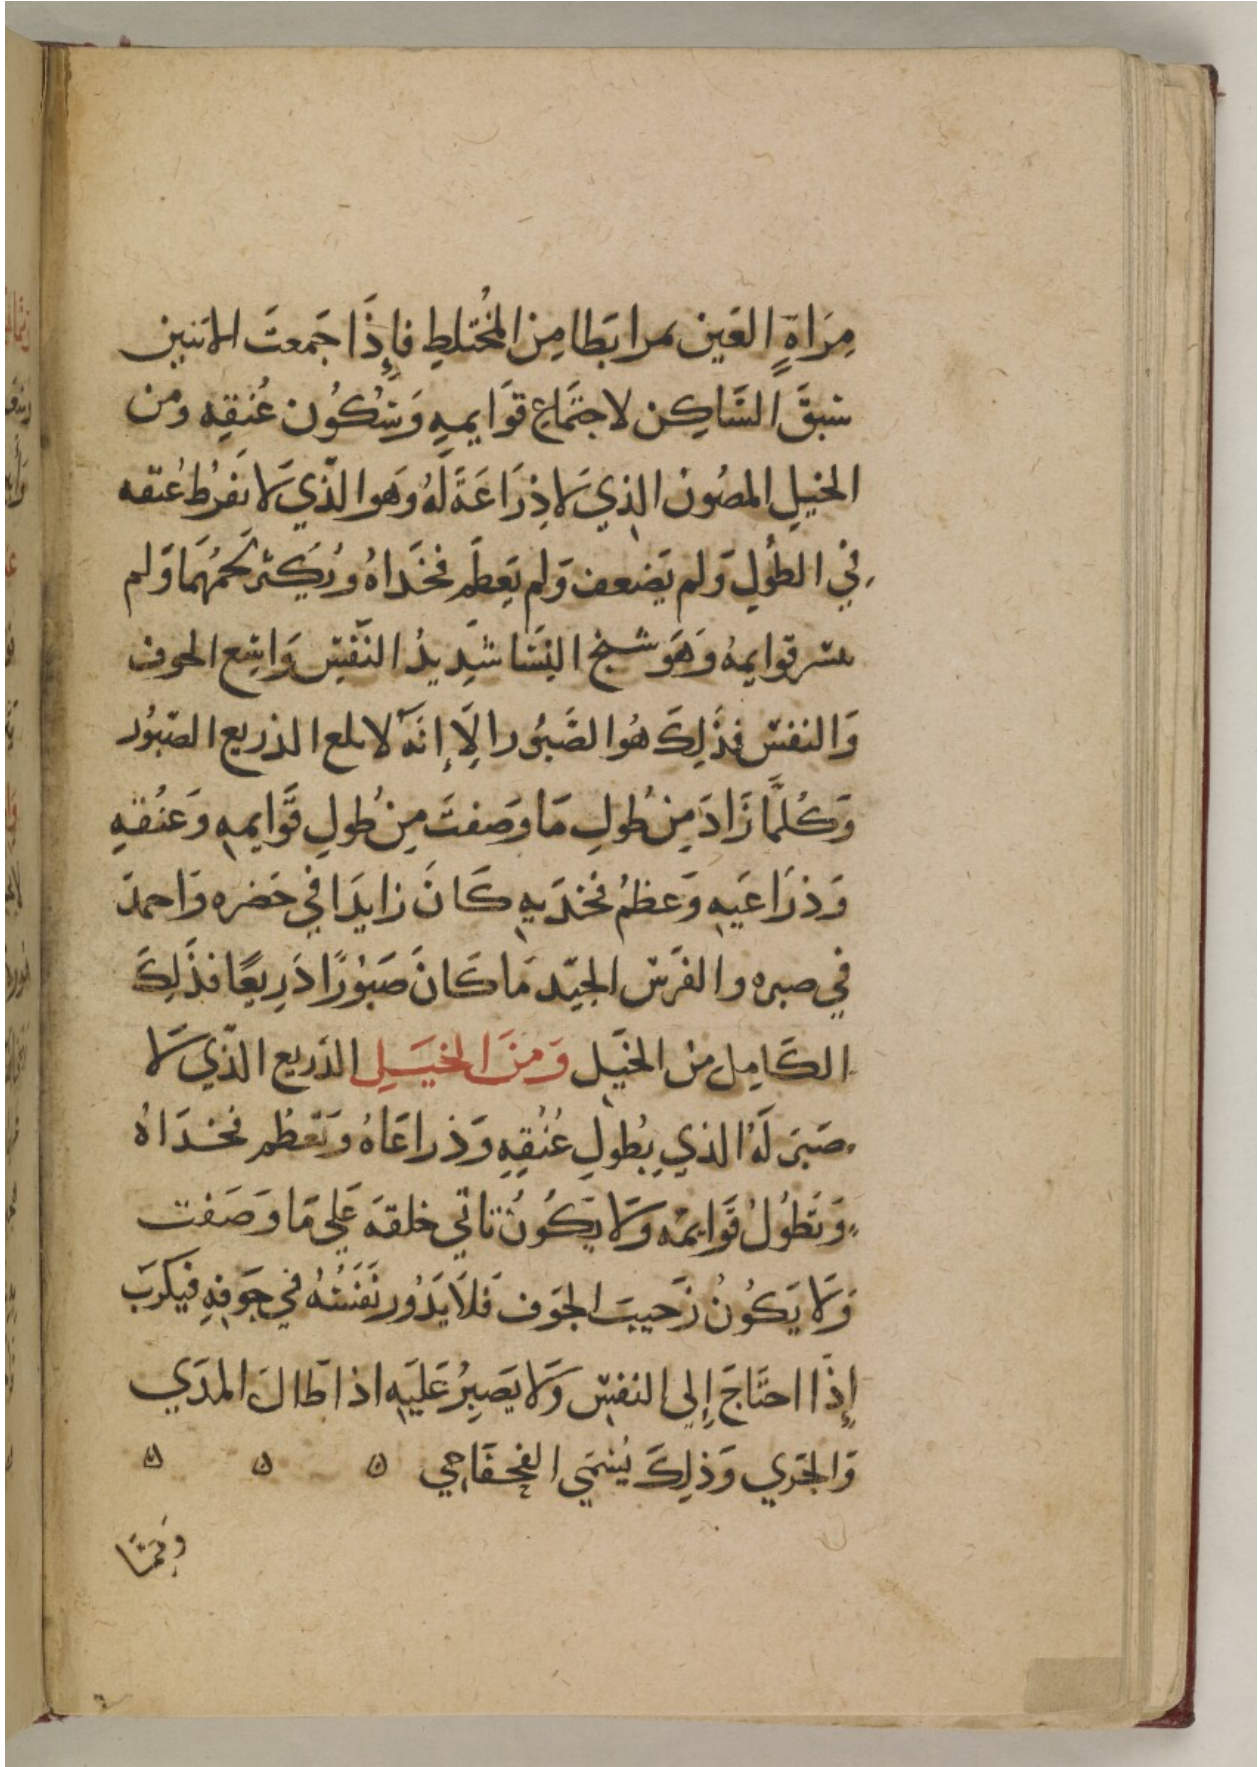 مِرَاةِ العَين مرابَطا مِن المُختلطِ فإِذَا جَمعتَ الاثنين
سَبقَ السَّاكِن لاجتَماعِ قوَايمِهِ وَسُكُون عُنقِه ومن
الخيلِ المصُون الذِي لَا ذِرَاعَةَ لَهُ وَهوا لَّذي لَا نفرُط عُنقه
في الطُولِ وَلم يَضعف وَلم يَعظَم فخَداهُ ويُكَثر لحمُهمَا وَلم
قوايمهُ وَهَو شنج النِسَا شَدِيدُ النَّفَسِ وَاسِع الجوف
وَالنفس فذَلِكَ هُوا لصَبُور الِاَّ إنَهُ لا يلع الذريع الصَبُور
وَكُلمَّا زَادَ مِن طُولِ مَا وَصَفتَ مِن طُولِ قَوايمهِ وَعنُقهِ
وَذرَاعَيهِ وَعظمُ فخدَيهِ كَانَ زايدَا في حَضره وَاحمدَ
في صبره والفرَس الجيّد مَا كَانَ صَبُورًا ذَرِيعًا فذَلِكَ
الكَامِل من الخيَل وَمنَ الخيَلِ الذَريع الذَّي لَا
صَبرَ لَهُ الذي يِطُولِ عُنُقِهِ وَذراعَاهُ وَتَعظُم فخدَاهُ
وَتَطُولُ قَوايمُه وَلَا يَكُونُ ثاتي خلقهَ عَلي مَا وَصَفت
وَلَا يَكُونُ رَحيبَ الجَوف فَلَا يَدُور نَفَسُهُ في جَوفِهِ فيَكرَبَ
إِذَا احتَاجَ إِلى النفس وَلَا يَصَبِرُ عَلَيهِ اذا طَالَ المَدَي
وَالجَري وَذلِكَ يُسَمَي القحقَاحي ه ه ه